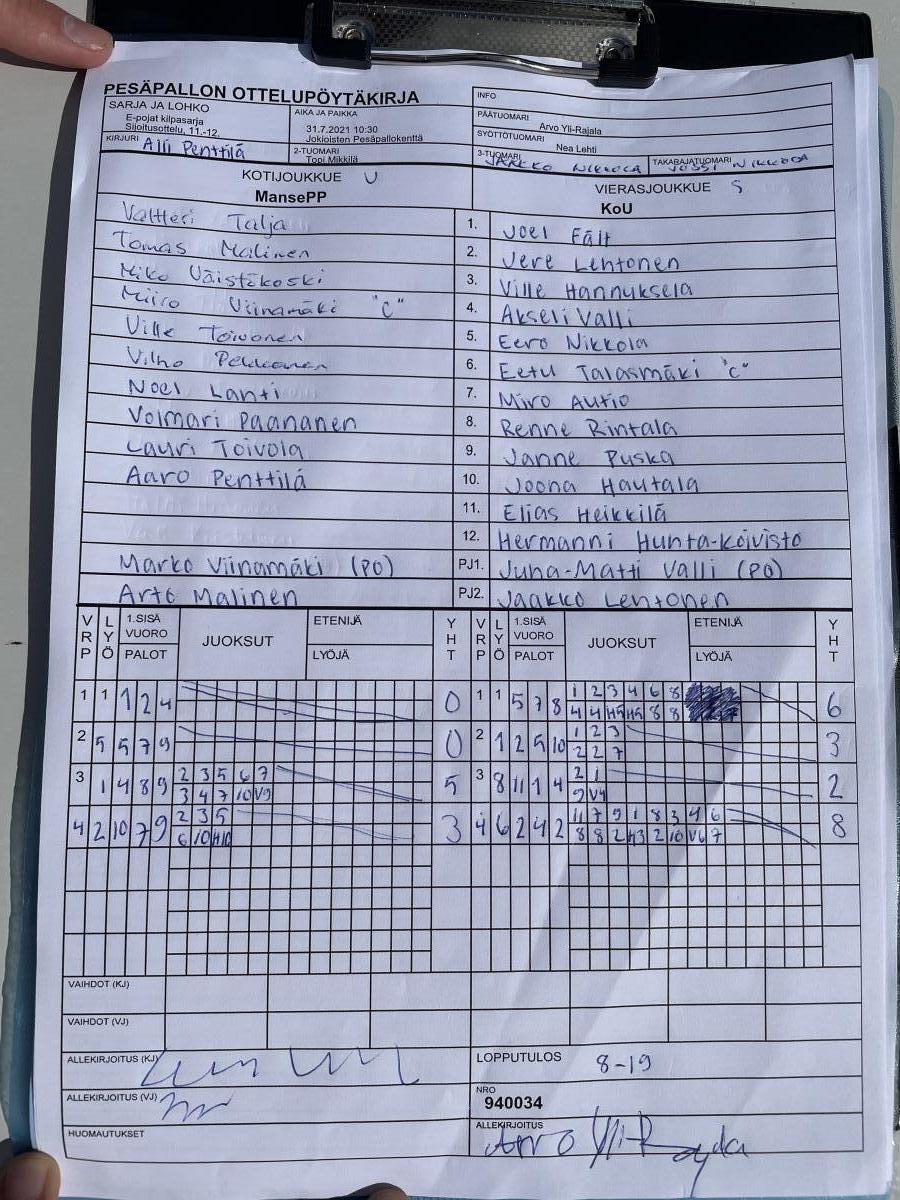 PESÄPALLON OTTELUPÖYTÄKIRJA
SARJA JA LOHKO
E-pojat kilpasarja
Sijoitusottelu, 11.-12.
AIKA JA PAIKKA
31.7.2021 10:30
Jokioisten Pesäpallokenttä
KIRJURI
Penttilä
2-TUOMARI
Topi Mikkilä
INFO
PÄÄTUOMARI
Arvo Yli-Rajala
SYÖTTÖTUOMARI
Nea Lehti
3-TUOMARI
JAAKKO NIKKOLA
TAKARAJATUOMARI
JUSSI NIKKOLA
KOTIJOUKKUE U
MansePP
VIERASJOUKKUE S
KoU
Valtteri Talja 1. Joel Fält
Tomas Malinen 2. Vere Lehtonen
Miko Väistökoski 3. Ville Hannuksela
Miiro Viinamäki "C" 4. Akseli Valli
Ville Toivonen 5. Eero Nikkola
Vilho Pekkanen 6. Eetu Talasmäki "C"
Noel Lahti 7. Miro Autio
Volmari Paananen 8. Renne Rintala
Lauri Toivola 9. Janne Puska
Aaro Penttilä 10. Joona Hautala
11. Elias Heikkilä
12. Hermanni Hunta-Koivisto
Marko Viinamäki (PO) PJ1. Juha-Matti Valli (PO)
Arto Malinen PJ2. Jaakko Lehtonen
VRP LYÖ 1.SISÄ VUORO PALOT JUOKSUT ETENIJÄ LYÖJÄ YHT VRP LYÖ 1.SISÄ VUORO PALOT JUOKSUT ETENIJÄ LYÖJÄ YHT
1 1 1 2 4 0 1 1 5 7 8 1 2 3 4 6 8 6
4 4 H5 H5 8 8
2 5 5 7 9 0 2 1 2 5 10 1 2 3 3
2 2 7
3 1 4 8 9 2 3 5 6 7 5 3 8 11 1 4 2 1 2
3 4 7 10 V9 9 V4
4 2 10 7 9 2 3 5 3 4 6 2 4 2 11 7 9 1 8 3 4 6 8
6 10 H10 8 8 2 H3 2 10 V6 7
VAIHDOT (KJ)
VAIHDOT (VJ)
ALLEKIRJOITUS (KJ)
LOPPUTULOS 8-19
ALLEKIRJOITUS (VJ)
NRO
940034
HUOMAUTUKSET
ALLEKIRJOITUS
Arvo Yli-Rajala